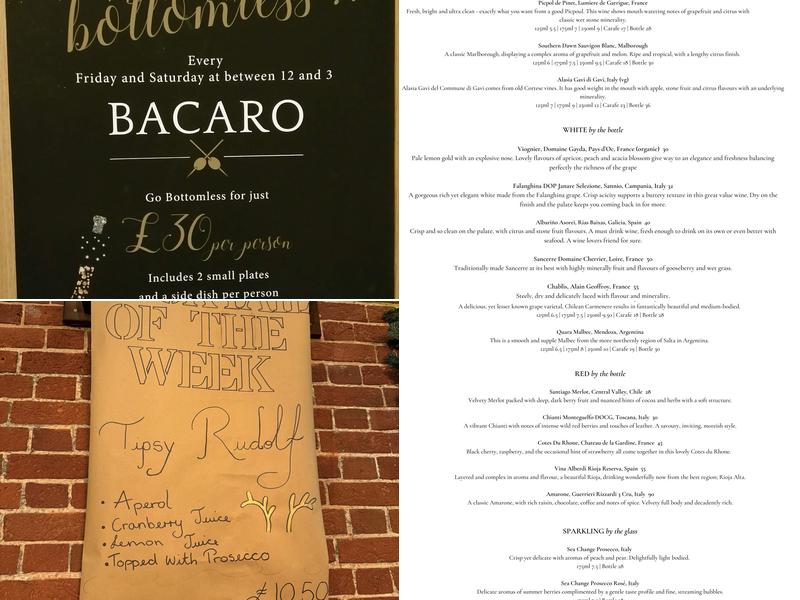 bottomless
Every
Friday and Saturday at between 12 and 3
BACARO
Go Bottomless for just
£30 per person
Includes 2 small plates
and a side dish per person
OF THE
WEEK
Tipsy Rudolf
• Aperol
• Cranberry Juice
• Lemon Juice
• Topped With Prosecco
£10.50
Picpol de Pinet, Lumiere de Garrigue, France
Fresh, bright and ultra clean - exactly what you want from a good Picpoul. This wine shows mouth watering notes of grapefruit and citrus with
classic wet stone minerality.
125ml 5.5 | 175ml 7 | 250ml 9 | Carafe 17 | Bottle 28
Southern Dawn Sauvignon Blanc, Malborough
A classic Marlborough, displaying a complex aroma of grapefruit and melon. Ripe and tropical, with a lengthy citrus finish.
125ml 6 | 175ml 7.5 | 250ml 9.5 | Carafe 18 | Bottle 30
Alasia Gavi di Gavi, Italy (vg)
Alasia Gavi del Commune di Gavi comes from old Cortese vines. It has good weight in the mouth with apple, stone fruit and citrus flavours with an underlying
minerality.
125ml 7 | 175ml 9 | 250ml 12 | Carafe 23 | Bottle 36
WHITE by the bottle
Viognier, Domaine Gayda, Pays d'Oc, France (organic) 30
Pale lemon gold with an explosive nose. Lovely flavours of apricot, peach and acacia blossom give way to an elegance and freshness balancing
perfectly the richness of the grape
Falanghina DOP Janare Selezione, Sannio, Campania, Italy 32
A gorgeous rich yet elegant white made from the Falanghina grape. Crisp acicity supports a buttery texture in this great value wine. Dry on the
finish and the palate keeps you coming back in for more.
Albariño Asorei, Rias Baixas, Galicia, Spain 40
Crisp and so clean on the palate, with citrus and stone fruit flavours. A must drink wine, fresh enough to drink on its own or even better with
seafood. A wine lovers friend for sure.
Sancerre Domaine Cherrier, Loire, France 50
Traditionally made Sancerre at its best with highly minerally fruit and flavours of gooseberry and wet grass.
Chablis, Alain Geoffroy, France 55
Steely, dry and delicately laced with flavour and minerality.
A delicious, yet lesser known grape varietal, Chilean Carmenere results in fantastically beautiful and medium-bodied.
125ml 6.5 | 175ml 7.5 | 250ml 9.50 | Carafe 18 | Bottle 28
Quara Malbec, Mendoza, Argentina
This is a smooth and supple Malbec from the more northernly region of Salta in Argentina.
125ml 6.5 | 175ml 8 | 250ml 10 | Carafe 19 | Bottle 30
RED by the bottle
Santiago Merlot, Central Valley, Chile 28
Velvety Merlot packed with deep, dark berry fruit and nuanced hints of cocoa and herbs with a soft structure.
Chianti Monteguelfo DOCG, Toscana, Italy 30
A vibrant Chianti with notes of intense wild red berries and touches of leather. A savoury, inviting, moreish style.
Cotes Du Rhone, Chateau de la Gardine, France 45
Black cherry, raspberry, and the occasional hint of strawberry all come together in this lovely Cotes du Rhone.
Vina Alberdi Rioja Reserva, Spain 55
Layered and complex in aroma and flavour, a beautiful Rioja, drinking wonderfully now from the best region; Rioja Alta.
Amarone, Guerrieri Rizzardi 3 Cru, Italy 90
A classic Amarone, with rich raisin, chocolate, coffee and notes of spice. Velvety full body and decadently rich.
SPARKLING by the glass
Sea Change Prosecco, Italy
Crisp yet delicate with aromas of peach and pear. Delightfully light bodied.
175ml 7.5 | Bottle 28
Sea Change Prosecco Rosé, Italy
Delicate aromas of summer berries complimented by a gentle taste profile and fine, streaming bubbles.